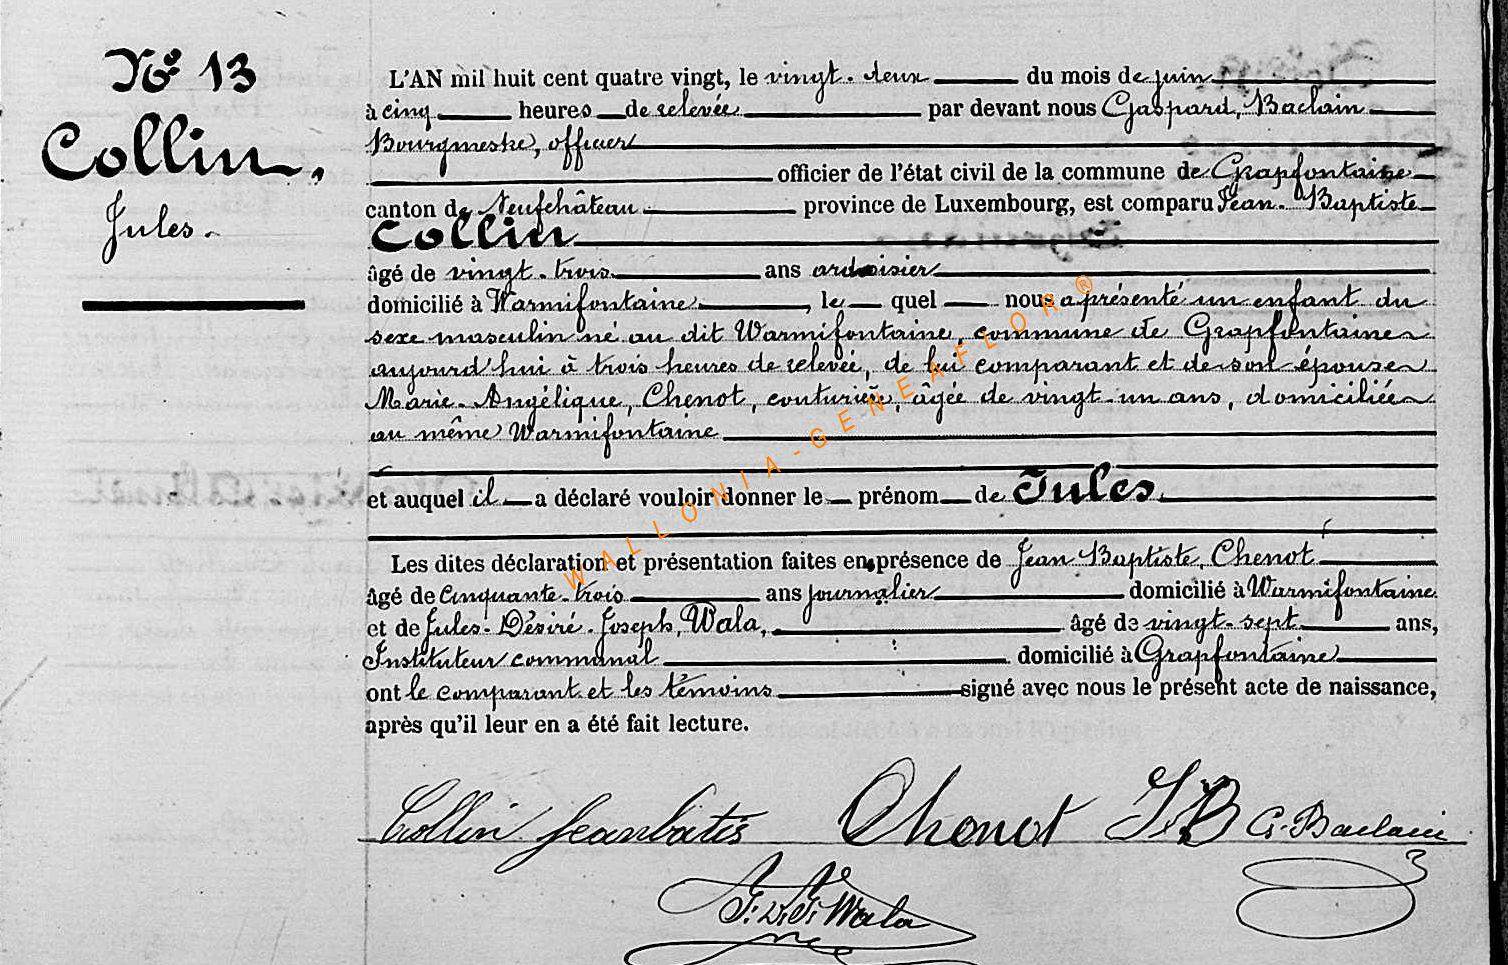 No 13
Collin,
Jules.
L'AN mil huit cent quatre vingt, le vingt-deux du mois de juin
à cinq heures de relevée par devant nous Gaspard, Baclain
Bourgmestre, officier
officier de l'état civil de la commune de Grapfontaine
canton de Neufchâteau province de Luxembourg, est comparu Jean-Baptiste
Collin
âgé de vingt-trois ans ardoisier
domicilié à Warmifontaine, le quel nous a présenté un enfant du
sexe masculin né au dit Warmifontaine, commune de Grapfontaine
aujourd'hui à trois heures de relevée, de lui comparant et de son épouse
Marie-Angélique, Chenot, couturière, âgée de vingt-un ans, domiciliée
au même Warmifontaine
et auquel il a déclaré vouloir donner le prénom de Jules.
Les dites déclaration et présentation faites en présence de Jean Baptiste, Chenot
âgé de Cinquante-trois ans journalier domicilié à Warmifontaine
et de Jules-Désiré-Joseph, Wala, âgé de vingt-sept ans,
Instituteur communal domicilié à Grapfontaine
ont le comparant et les témoins signé avec nous le présent acte de naissance,
après qu'il leur en a été fait lecture.
Collin Jeanbatis Chenot J.B G. Baclain
J.D.J. Wala
WALLONIA-GENEAFLOR®